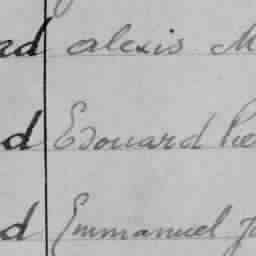 ad alexis M
d Edouard Pie
d Emmanuel J